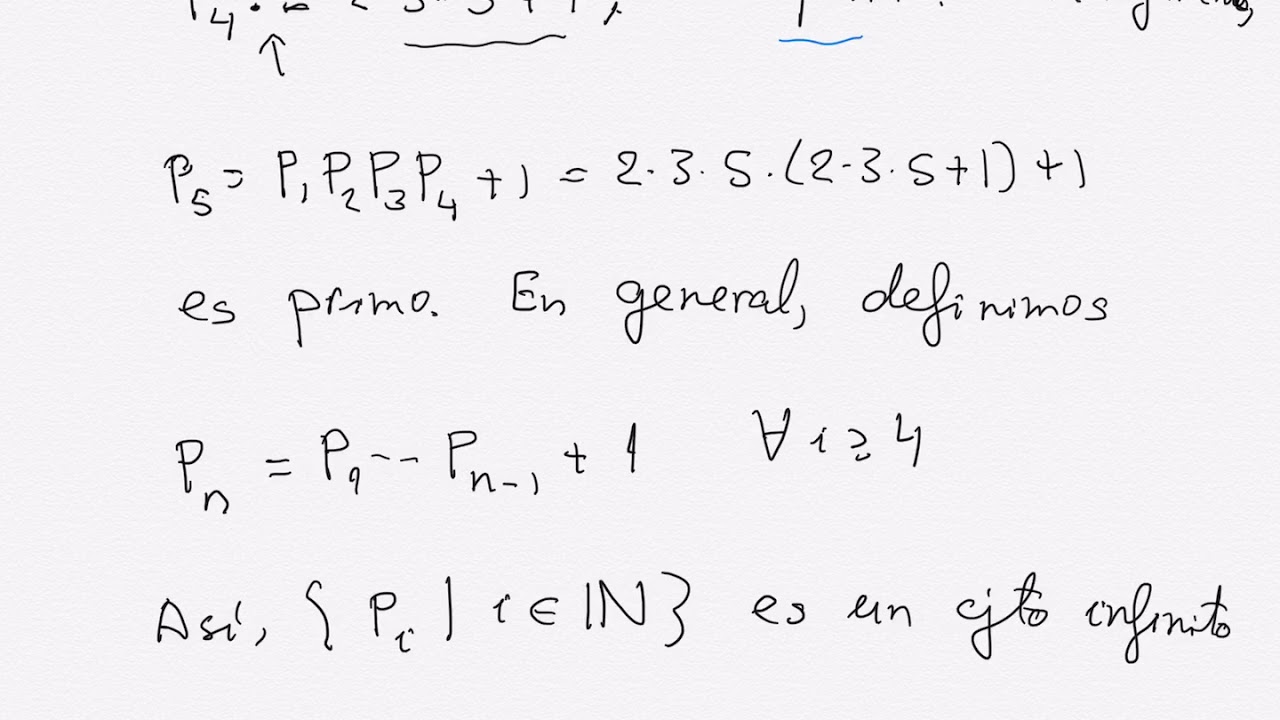 P₄ = 2·3·5+1,
P₅ = P₁P₂P₃P₄ + 1 = 2·3·5·(2·3·5+1)+1
es primo. En general, definimos
Pₙ = P₁-- Pₙ₋₁ + 1 ∀ i ≥ 4
Así, { Pᵢ | i ∈ ℕ } es un cjto infinito